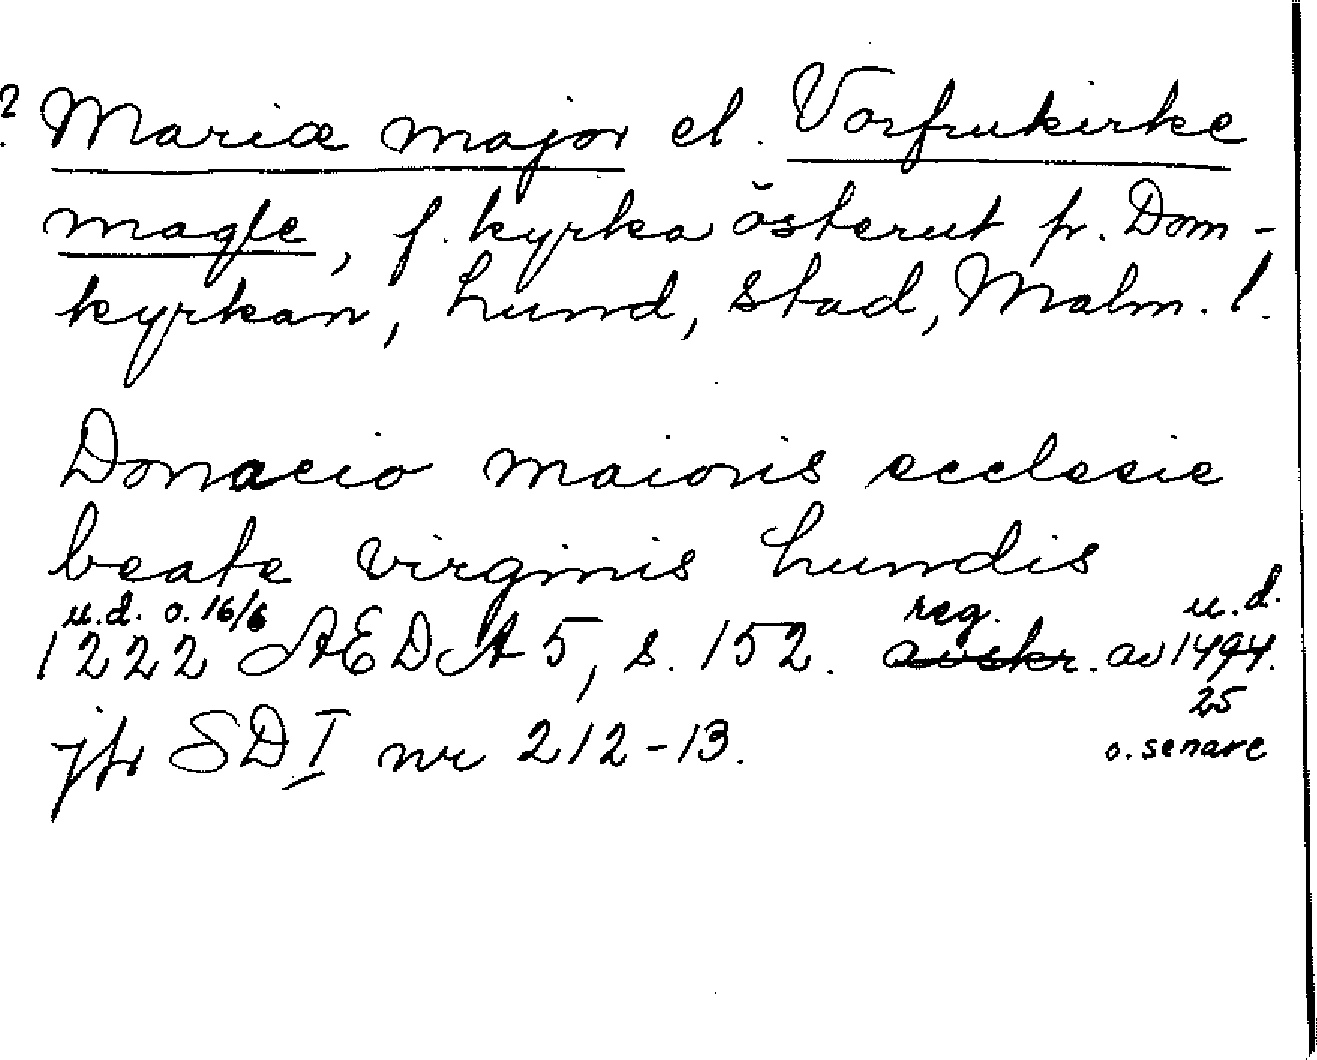 ? Mariæ major el. Vorfrukirke
magle, f. kyrka österut fr. Dom-
kyrkan, Lund, stad, Malm. l.
Donacio maioris ecclesie
beate virginis Lundis
u.d. o. 16/6 reg. u.d.
1222 ÆDA 5, s. 152. avskr. av 1494.
25
jfr SD I nr 212-13. o. senare